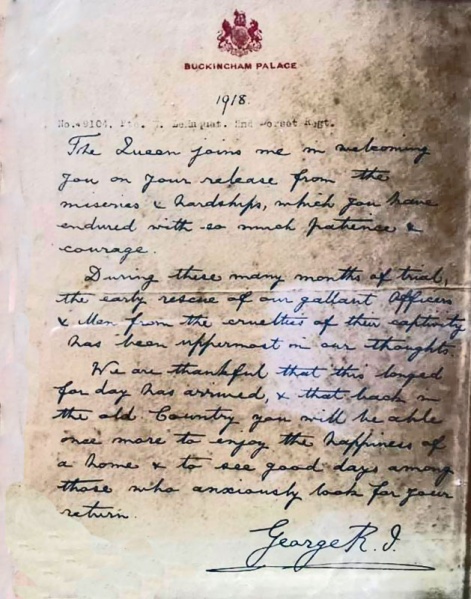 BUCKINGHAM PALACE
1918.
2nd Dorset Regt.
The Queen joins me in welcoming
you on your release from the
miseries & hardships, which you have
endured with so much patience &
courage.
During these many months of trial,
the early rescue of our gallant Officers
& Men from the cruelties of their captivity
has been uppermost in our thoughts.
We are thankful that this longed
for day has arrived, & that back in
the old Country you will be able
once more to enjoy the happiness of
a home & to see good days among
those who anxiously look for your
return.
George R.I.